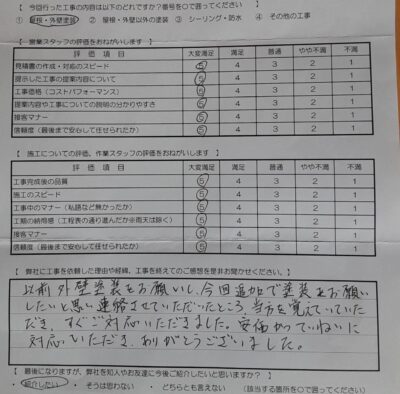 【 今回行った工事の内容は以下のどれですか?番号を〇で囲ってください 】
① 屋根・外壁塗装 ② 屋根・外壁以外の塗装 ③ シーリング・防水 ④ その他の工事
【 営業スタッフの評価をおねがいします 】
評価項目 大変満足 満足 普通 やや不満 不満
見積書の作成・対応のスピード 5 4 3 2 1
提示した工事の提案内容について 5 4 3 2 1
工事価格(コストパフォーマンス) 5 4 3 2 1
提案内容や工事についての説明の分かりやすさ 5 4 3 2 1
接客マナー 5 4 3 2 1
信頼度(最後まで安心して任せられたか) 5 4 3 2 1
【 施工についての評価、作業スタッフの評価をおねがいします 】
評価項目 大変満足 満足 普通 やや不満 不満
工事完成後の品質 5 4 3 2 1
施工のスピード 5 4 3 2 1
工事中のマナー(私語など無かったか) 5 4 3 2 1
工期の納得感(工程表の通り進んだか※雨天は除く) 5 4 3 2 1
接客マナー 5 4 3 2 1
信頼度(最後まで安心して任せられたか) 5 4 3 2 1
【 弊社に工事を依頼した理由や経緯、工事を終えてのご感想を是非お聞かせください。 】
以前外壁塗装をお願いし、今回追加で塗装をお願い
したいと思い連絡させていただいたところ、当方を覚えていていた
だき、すぐご対応いただきました。安価かつていねいに
対応いただき、ありがとうございました。
【 最後になりますが、弊社を知人やお友達に今後ご紹介したいと思いますか? 】
紹介したい ・ そうは思わない ・ どちらとも言えない (該当する箇所を〇で囲ってください)